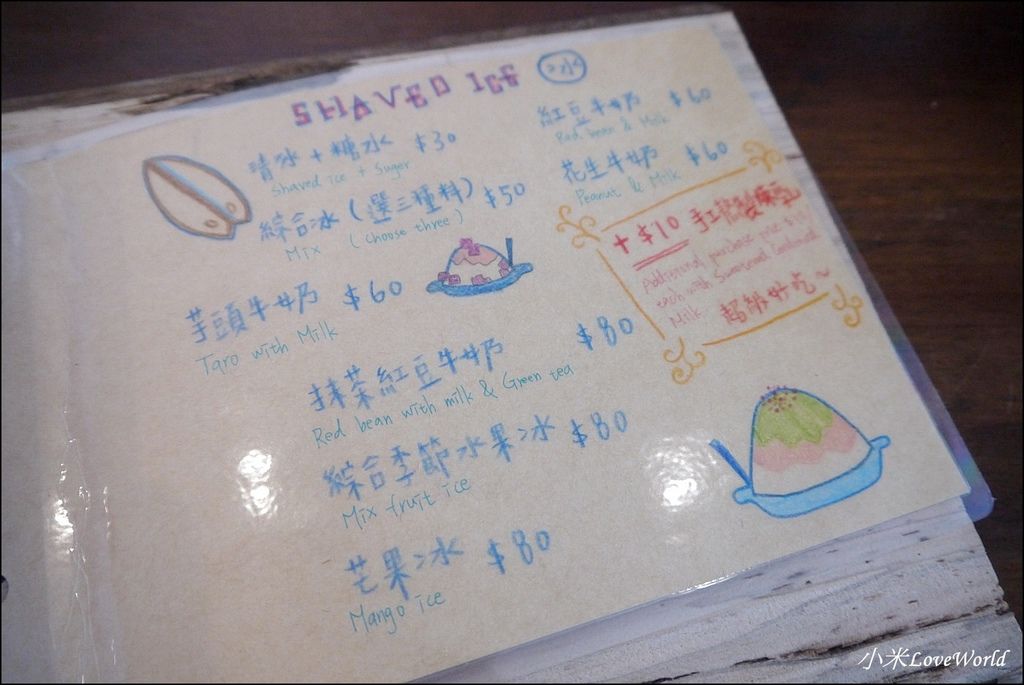 SHAVED ICE 冰
清冰 + 糖水 $30
Shaved ice + Suger
綜合冰 (選三種料) $50
Mix (choose three)
芋頭牛奶 $60
Taro with Milk
抹茶紅豆牛奶 $80
Red bean with milk & Green tea
綜合季節水果冰 $80
Mix fruit ice
芒果冰 $80
Mango ice
紅豆牛奶 $60
Red bean & Milk
花生牛奶 $60
Peanut & Milk
+ $10 手工
Additional purchase
each with Sweetened Condensed
Milk 超級好吃~
小米LoveWorld